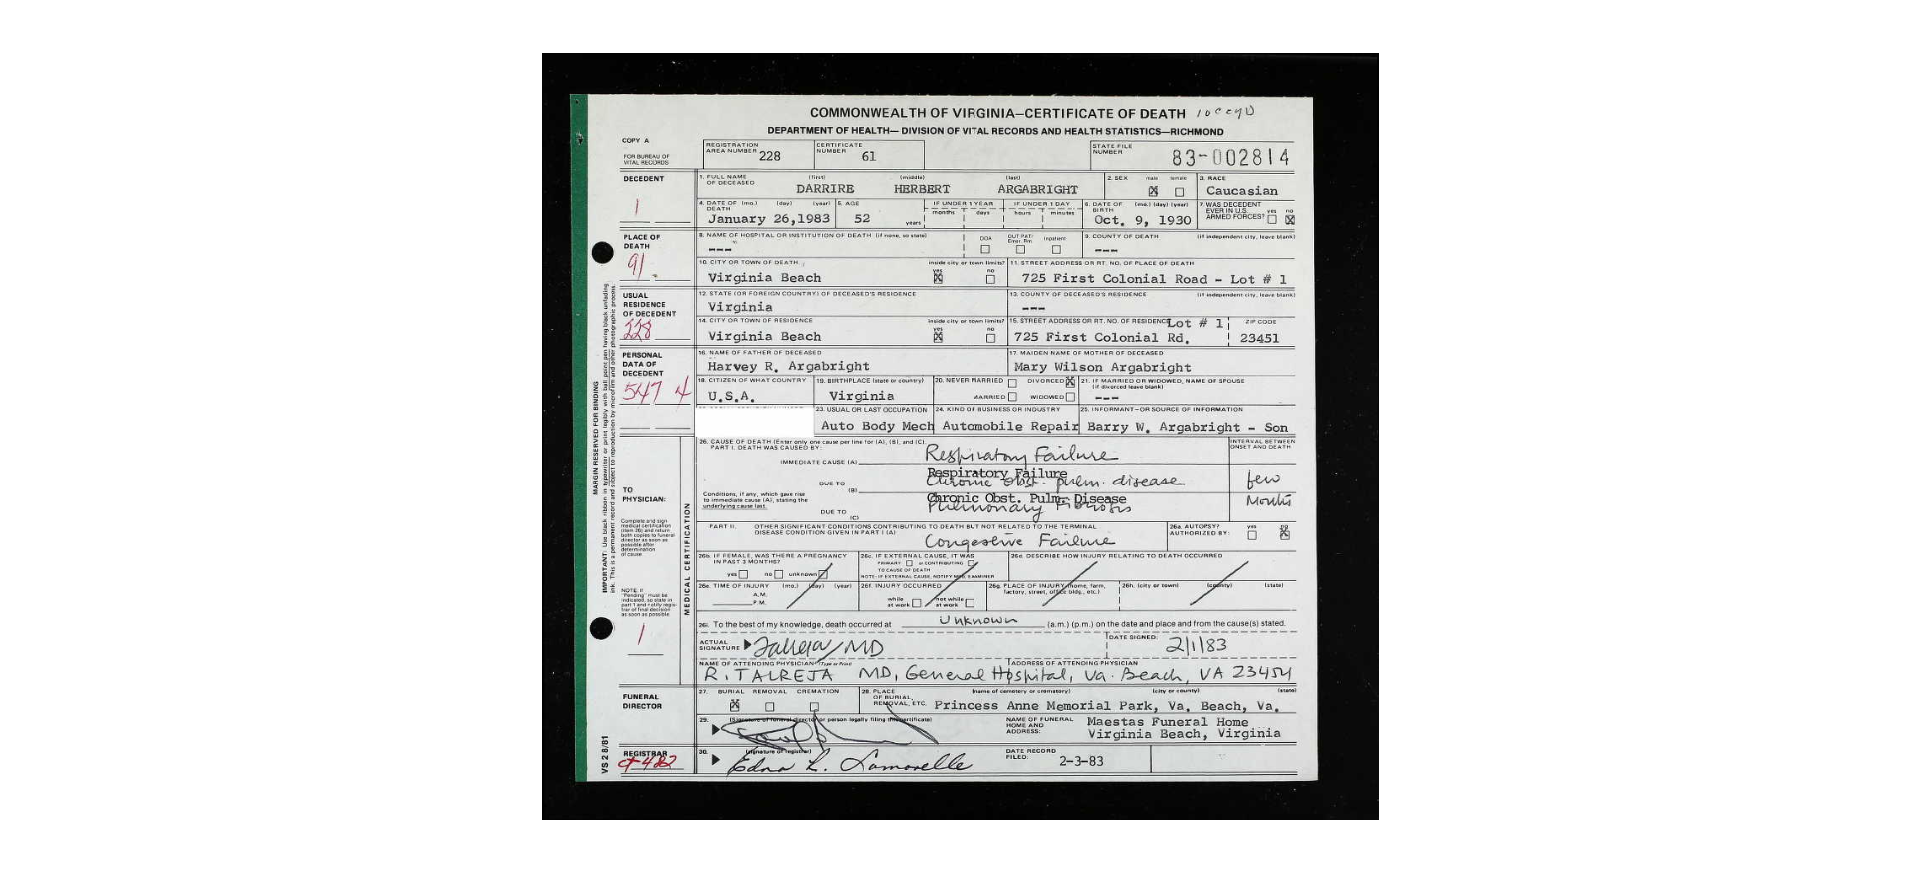 COMMONWEALTH OF VIRGINIA—CERTIFICATE OF DEATH
DEPARTMENT OF HEALTH— DIVISION OF VITAL RECORDS AND HEALTH STATISTICS—RICHMOND
COPY A
FOR BUREAU OF VITAL RECORDS
REGISTRATION AREA NUMBER 228 CERTIFICATE NUMBER 61 STATE FILE NUMBER 83-002814
DECEDENT
1. FULL NAME OF DECEASED (first) (middle) (last) 2. SEX male female 3. RACE
DARRIRE HERBERT ARGABRIGHT Caucasian
1
4. DATE OF DEATH (mo.) (day) (year) 5. AGE IF UNDER 1 YEAR IF UNDER 1 DAY 6. DATE OF BIRTH (mo.) (day) (year) 7. WAS DECEDENT EVER IN U.S. ARMED FORCES? yes no
January 26,1983 52 years months days hours minutes Oct. 9, 1930
PLACE OF DEATH
8. NAME OF HOSPITAL OR INSTITUTION OF DEATH (if none, so state) DOA OUT PAT/ Emer. Rm Inpatient 9. COUNTY OF DEATH (if independent city, leave blank)
--- ---
91.
10. CITY OR TOWN OF DEATH inside city or town limits? yes no 11. STREET ADDRESS OR RT. NO. OF PLACE OF DEATH
Virginia Beach 725 First Colonial Road - Lot # 1
USUAL RESIDENCE OF DECEDENT
12. STATE (OR FOREIGN COUNTRY) OF DECEASED'S RESIDENCE 13. COUNTY OF DECEASED'S RESIDENCE (if independent city, leave blank)
Virginia ---
228
14. CITY OR TOWN OF RESIDENCE inside city or town limits? yes no 15. STREET ADDRESS OR RT. NO. OF RESIDENCE Lot # 1 ZIP CODE
Virginia Beach 725 First Colonial Rd. 23451
PERSONAL DATA OF DECEDENT
16. NAME OF FATHER OF DECEASED 17. MAIDEN NAME OF MOTHER OF DECEASED
Harvey R. Argabright Mary Wilson Argabright
547 4
18. CITIZEN OF WHAT COUNTRY 19. BIRTHPLACE (state or country) 20. NEVER MARRIED DIVORCED 21. IF MARRIED OR WIDOWED, NAME OF SPOUSE (if divorced leave blank)
U.S.A. Virginia MARRIED WIDOWED ---
23. USUAL OR LAST OCCUPATION 24. KIND OF BUSINESS OR INDUSTRY 25. INFORMANT—OR SOURCE OF INFORMATION
Auto Body Mech Automobile Repair Barry W. Argabright - Son
MARGIN RESERVED FOR BINDING
MEDICAL CERTIFICATION
26. CAUSE OF DEATH (Enter only one cause per line for (A), (B), and (C).) INTERVAL BETWEEN ONSET AND DEATH
PART I. DEATH WAS CAUSED BY:
IMMEDIATE CAUSE (A) Respiratory Failure
Respiratory Failure
DUE TO (B) Chronic obst. pulm. disease few
Chronic Obst. Pulm. Disease Months
Conditions, if any, which gave rise to immediate cause (A), stating the underlying cause last.
DUE TO (C) Pulmonary Fibrosis
TO PHYSICIAN:
Complete and sign medical certification (item 26) and return both copies to funeral director as soon as possible after determination of cause.
PART II. OTHER SIGNIFICANT CONDITIONS CONTRIBUTING TO DEATH BUT NOT RELATED TO THE TERMINAL DISEASE CONDITION GIVEN IN PART I (A) 26a. AUTOPSY? AUTHORIZED BY: yes no
Congestive Failure
26b. IF FEMALE, WAS THERE A PREGNANCY IN PAST 3 MONTHS? 26c. IF EXTERNAL CAUSE, IT WAS 26d. DESCRIBE HOW INJURY RELATING TO DEATH OCCURRED
yes no unknown PRIMARY or CONTRIBUTING TO CAUSE OF DEATH
NOTE: IF EXTERNAL CAUSE, NOTIFY MED. EXAMINER
26e. TIME OF INJURY (mo.) (day) (year) 26f. INJURY OCCURRED 26g. PLACE OF INJURY (home, farm, factory, street, office bldg., etc.) 26h. (city or town) (county) (state)
A.M. P.M. while at work not while at work
NOTE: If "Pending" must be indicated, so state in part 1 and notify registrar of final decision as soon as possible
1
26i. To the best of my knowledge, death occurred at Unknown (a.m.) (p.m.) on the date and place and from the cause(s) stated.
ACTUAL SIGNATURE Talreja MD DATE SIGNED: 2/1/83
NAME OF ATTENDING PHYSICIAN (Type or Print) ADDRESS OF ATTENDING PHYSICIAN
R. TALREJA MD, General Hospital, Va. Beach, VA 23454
FUNERAL DIRECTOR
27. BURIAL REMOVAL CREMATION 28. PLACE OF BURIAL, REMOVAL, ETC. (name of cemetery or crematory) (city or county) (state)
Princess Anne Memorial Park, Va. Beach, Va.
29. (Signature of funeral director or person legally filing this certificate) NAME OF FUNERAL HOME AND ADDRESS: Maestas Funeral Home
Virginia Beach, Virginia
REGISTRAR
30. (signature of registrar) DATE RECORD FILED: 2-3-83
Edna L. Lamorelle
VS 2 8/81